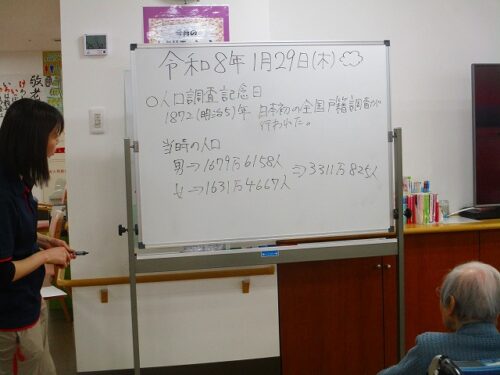 令和8年1月29日(木)
〇人口調査記念日
1872(明治5)年 日本初の全国戸籍調査が
行われた。
当時の人口
男⇒1679万6158人
⇒3311万825人
女⇒1631万4667人
敬老